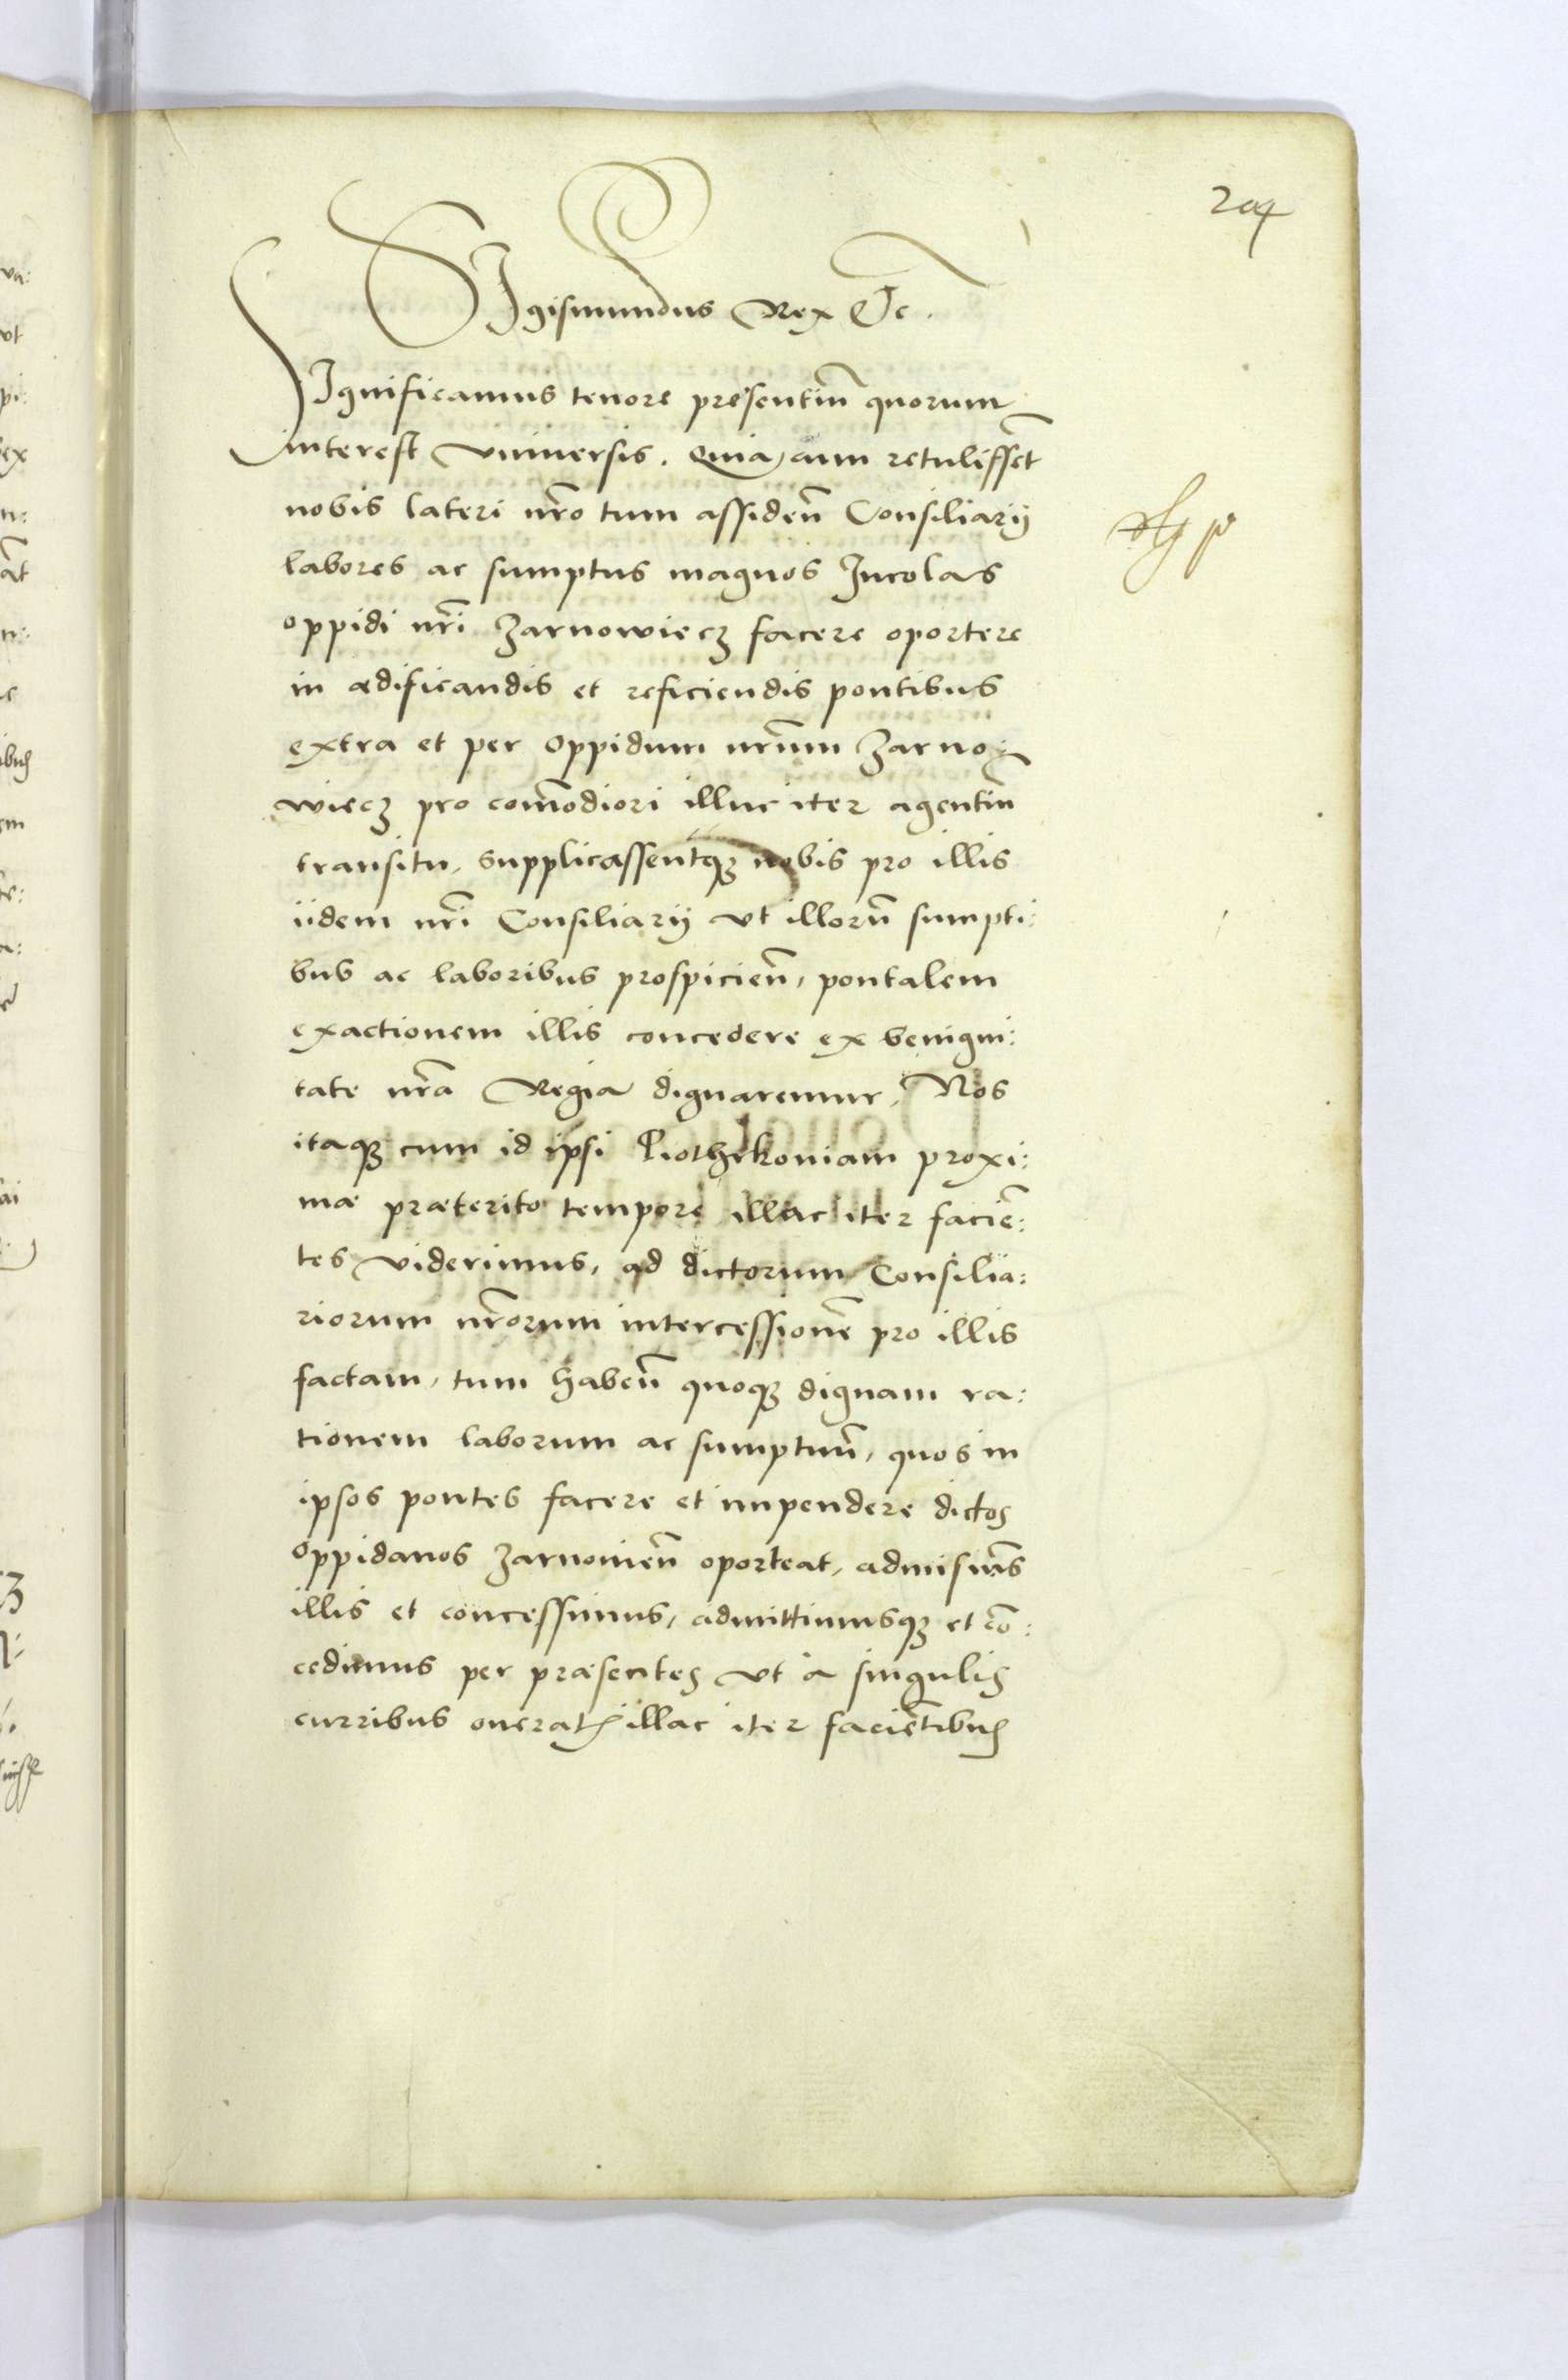 204
Sigismundus Rex &c.
Significamus tenore presentiũ quorum
interest vniuersis. Quia cum retulissẽt
nobis lateri nr̃o tum assideñ Consiliarij
labores ac sumptus magnos Incolas
oppidi nr̃i Zarnowiecz facere oportere
in ædificandis et reficiendis pontibus
extra et per oppidum nr̃um Zarno-
wiecz pro com̃odiori illuc iter agentiũ
transitu, supplicassentqꝫ nobis pro illis
iidem nr̃i Consiliarij vt illorũ sumpti:
bus ac laboribus prospicieñ, pontalem
exactionem illis concedere ex benigni:
tate nr̃a Regia dignaremur, Nos
itaqꝫ cum id ipsi Piothrkouiam proxi:
mæ præterito tempore illac iter faciẽ:
tes viderimus, ad dictorum Consilia:
riorum nr̃orum intercessionẽ pro illis
factam, tum habeñ quoqꝫ dignam ra:
tionem laborum ac sumptuũ, quos in
ipsos pontes facere et impendere dictos
oppidanos Zarnouieñ oporteat, admisim̃s
illis et concessimus, admittimusqꝫ et cõ:
cedimus per præsentes vt a singulis
curribus oneratis illac iter faciẽtibus